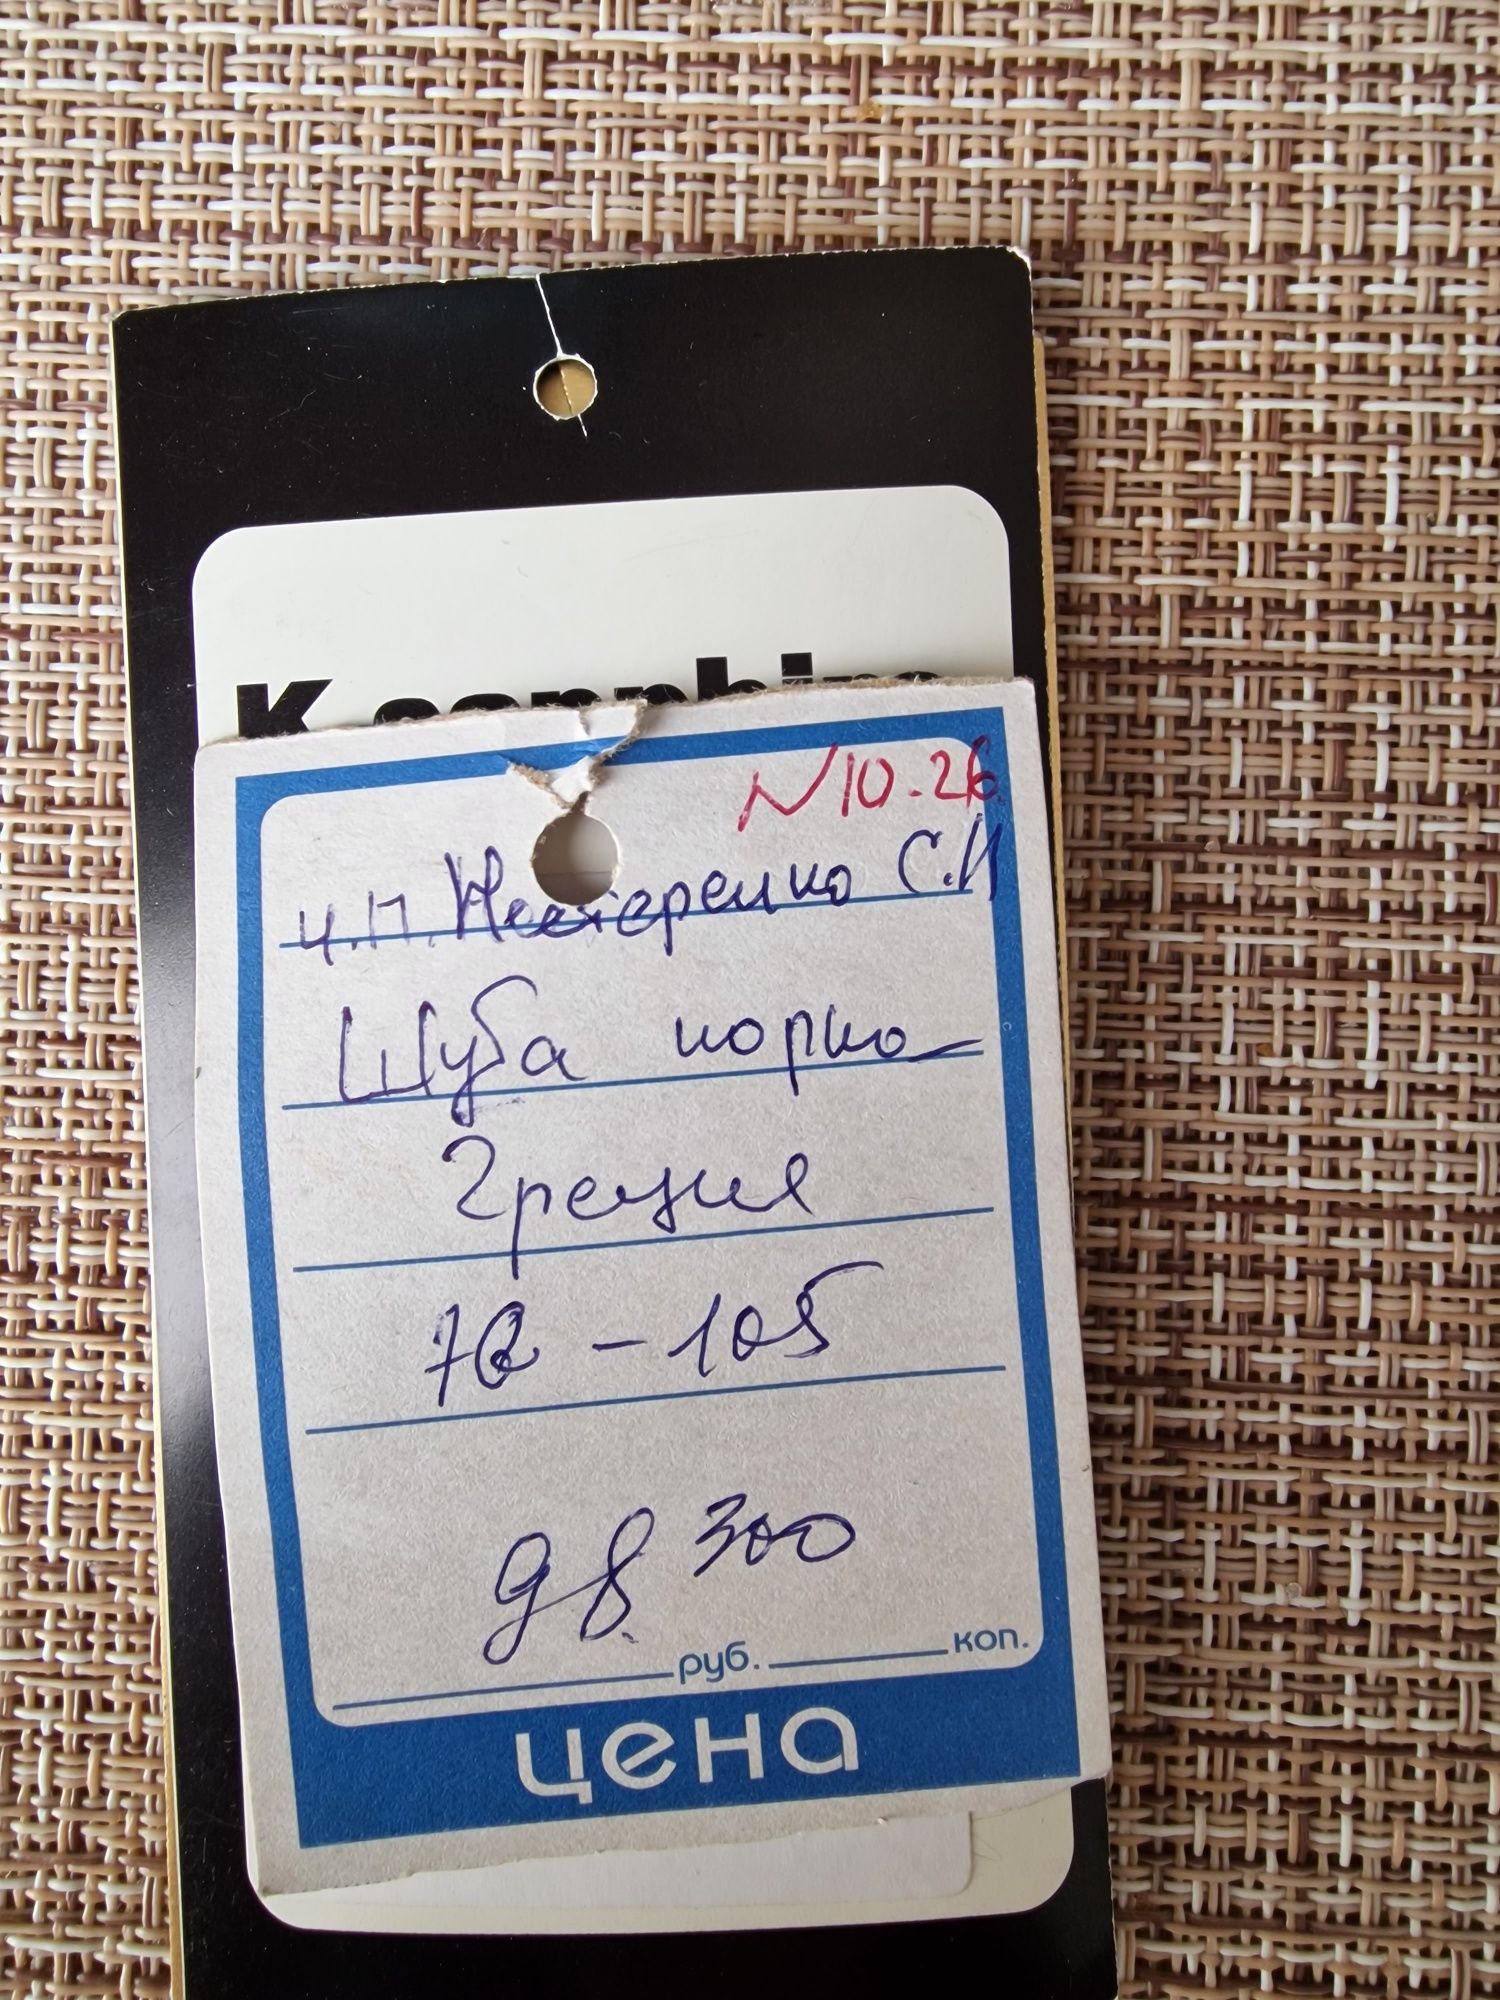 K sapphire
N10-26
ч.п. Нестеренко С.И
Шуба норка
Греция
-105
98 300
руб. коп.
цена